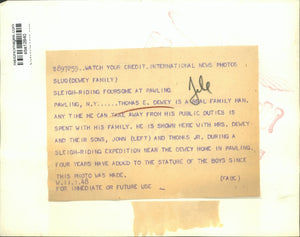 S897059..WATCH YOUR CREDIT..INTERNATIONAL NEWS PHOTOS
SLUG(DEWEY FAMILY)
SLEIGH-RIDING FOURSOME AT PAWLING
PAWLING, N.Y.....THOMAS E. DEWEY IS A REAL FAMILY MAN.
ANY TIME HE CAN TAKE AWAY FROM HIS PUBLIC DUTIES IS
SPENT WITH HIS FAMILY. HE IS SHOWN HERE WITH MRS. DEWEY
AND THEIR SONS, JOHN (LEFT) AND THOMAS JR. DURING A
SLEIGH-RIDING EXPEDITION NEAR THE DEWEY HOME IN PAWLING.
FOUR YEARS HAVE ADDED TO THE STATURE OF THE BOYS SINCE
THIS PHOTO WAS MADE.
FOR IMMEDIATE OR FUTURE USE